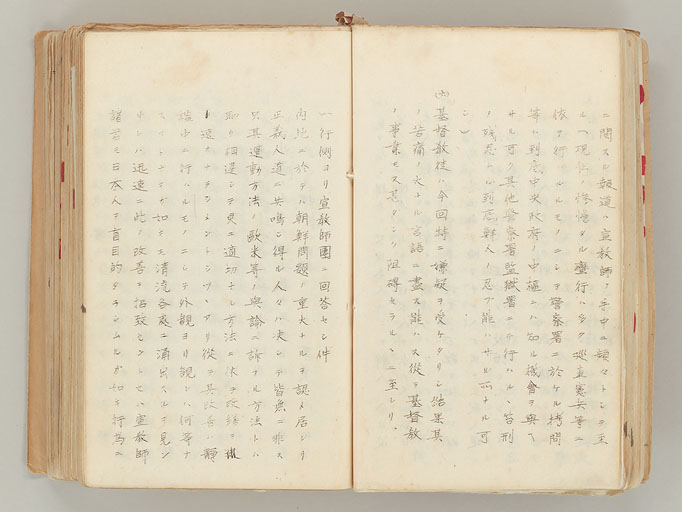 ニ関スル報道ハ宣教師ノ手中ニ頻々トシテ至
ル(現ニ惨憺タル蛮行ハ多ク巡査憲兵等ニ
依テ行ハルルモノニシテ警察署ニ於ケル拷問
等ハ到底中央政府ノ中枢ニハ知ル機会ヲ与ヘ
サル可ク其他警察署監獄署ニテ行ハルル笞刑
ノ残忍ナル到底鮮人ノ忍フ能ハサル所ナル可
シ)
基督教徒ハ今回特ニ嫌疑ヲ受ケタリシ結果其
ノ苦痛ノ大ナル言語ニ尽ス能ハス従テ基督教
ノ事業モ又甚タシク阻碍セラルルニ至レリ
一行側ヨリ宣教師団ニ回答セシ件
内地ニ於テハ朝鮮問題ノ重大ナルヲ認メ居レリ
正義人道ニ共鳴シ得ル人々ハ決シテ皆無ニ非ス
只其運動方法ノ欧米等ノ与論ニ訴フル方法トハ
相違シテ更ニ適切ナル方法ニ依テ改善ヲ
速カナラシメントシツツアリ従テ其改善ハ静
ニ行ハルモノニシテ外観ヨリ観レハ何等ナ
如キモ清流各処ニ湧出スルヲ見ン
ハ迅速ニ此ノ改善ヲ招致セントセハ宣教師
諸君モ日本人ヲ盲目的タラシムルカ如キ行為ニ